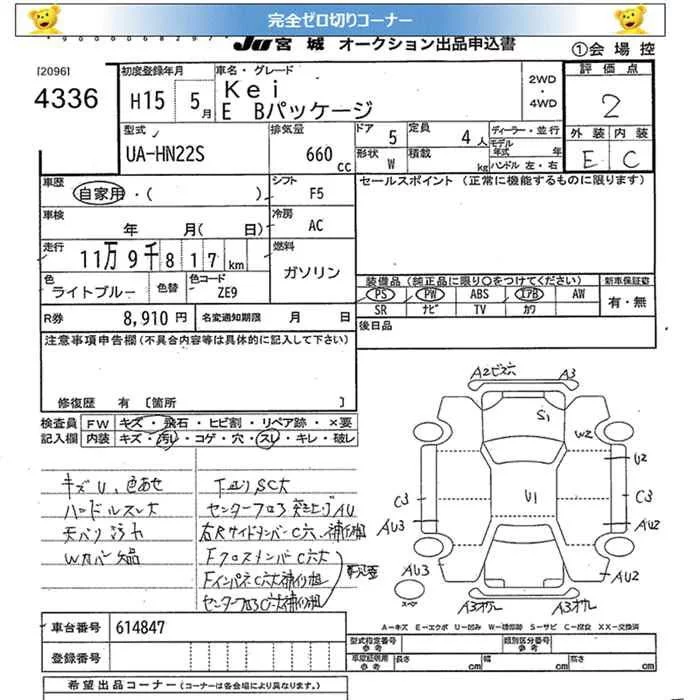 完全ゼロ切りコーナー
JU 宮城 オークション出品申込書
①会場控
[2096]
4336
初度登録年月
H15 5月
車名・グレード
Kei
E Bパッケージ
2WD
・
4WD
評価点
2
外装 内装
E C
型式
UA-HN22S
排気量
660cc
ドア 5
定員 4人
形状 W
積載 kg
ディーラー・並行
モデル年式 年
ハンドル 左・右
車歴
自家用・( )
シフト F5
セールスポイント (正常に機能するものに限ります)
車検
年 月( 日)
冷房 AC
走行
11万9千817km
燃料
ガソリン
色
ライトブルー
色替
色コード
ZE9
装備品(純正品に限り○をつけてください)
新車保証書
PS PW ABS エアB AW
SR ナビ TV カワ
有・無
R券 8,910円
名変通知期限 月 日
後日品
注意事項申告欄(不具合内容等は具体的に記入して下さい)
修復歴 有 [箇所 ]
検査員記入欄
FW キズ・飛石・ヒビ割・リペア跡・×要
内装 キズ・汚れ・コゲ・穴・スレ・キレ・破レ
キズU、色あせ
ハンドルスレ大
天バリ汚れ
Wカバー欠品
下廻りSC大
センターフロア突き上げAU
右Rサイドメンバー C穴、補修粗
FクロスメンバーC穴大
FインパネC穴大補修粗
センターフロアC穴大補修粗
A2ビス穴 A3
S1
W2
U2
U1
C3 C3
AU3 AU2
AU3 AU2
スペア
A3オクレ A3オクレ
A−キズ E−エクボ U−凹み W−補修跡 S−サビ C−腐食 XX−交換済
車台番号 614847
登録番号
型式指定番号 参考
類別区分番号 参考
長さ cm 幅 cm 高さ cm
希望出品コーナー(コーナーは各会場により異なります。)